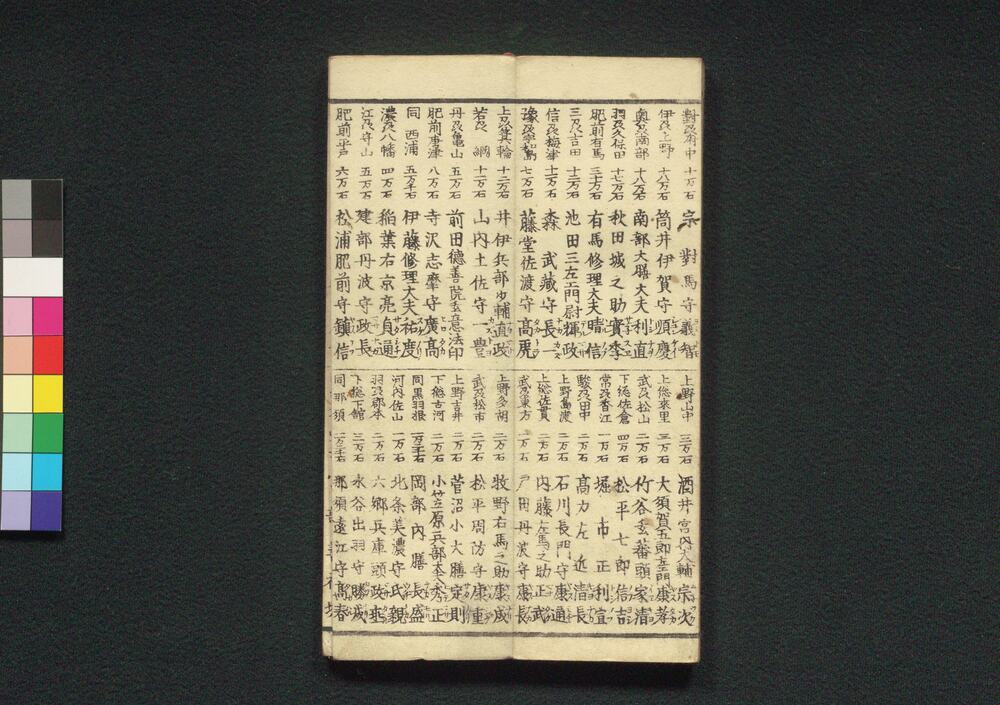 對及府中 十万石 宗對馬守義智
伊及上野 六万石 筒井伊賀守順慶
奥及南部 十八万石 南部大膳大夫利直
羽及久保田 十七万石 秋田城之助實季
肥前有馬 三十万石 有馬修理大夫晴信
三及吉田 十二万石 池田三左エ門尉輝政
信及梅津 十二万石 森武藏守長一
豫及宇和島 七万石 藤堂佐渡守高虎
上及箕輪 十二万石 井伊兵部少輔直政
若及 綱 十二万石 山内土佐守一豊
丹及亀山 五万石 前田德善院玄意法印
肥前唐津 八万石 寺沢志摩守廣高
同 西浦 五万千石 伊藤修理大夫祐慶
濃及八幡 四万石 稲葉右京亮貞通
江及守山 五万石 建部丹波守政長
肥前平戸 六万石 松浦肥前守鎮信
上野山中 三万石 酒井宮内大輔宗次
上総來里 三万石 大須賀五郎左門康孝
武及松山 二万石 竹谷玄蕃頭家清
下総佐倉 四万石 松平七郎信吉
常及香江 一万石 堀市正利宜
駿及田中 二万石 高力左近清長
上野鳥渡 二万石 石川長門守康通
上総佐貫 二万石 内藤左馬之助正武
武及東方 一万石 戸田丹波守康長
上野多胡 二万石 牧野右馬之助康成
武及松市 二万石 松平周防守康重
上野吉井 二万石 菅沼小大膳定則
下総古河 二万石 小笠原兵部大夫秀正
同黒羽根 一万三千石 岡部内膳長盛
河内佐山 一万石 北条美濃守氏親
羽及郡本 二万石 六郷兵庫頭政乗
下総下館 三万石 水谷出羽守勝成
同那須 一万三千石 那須遠江守高春